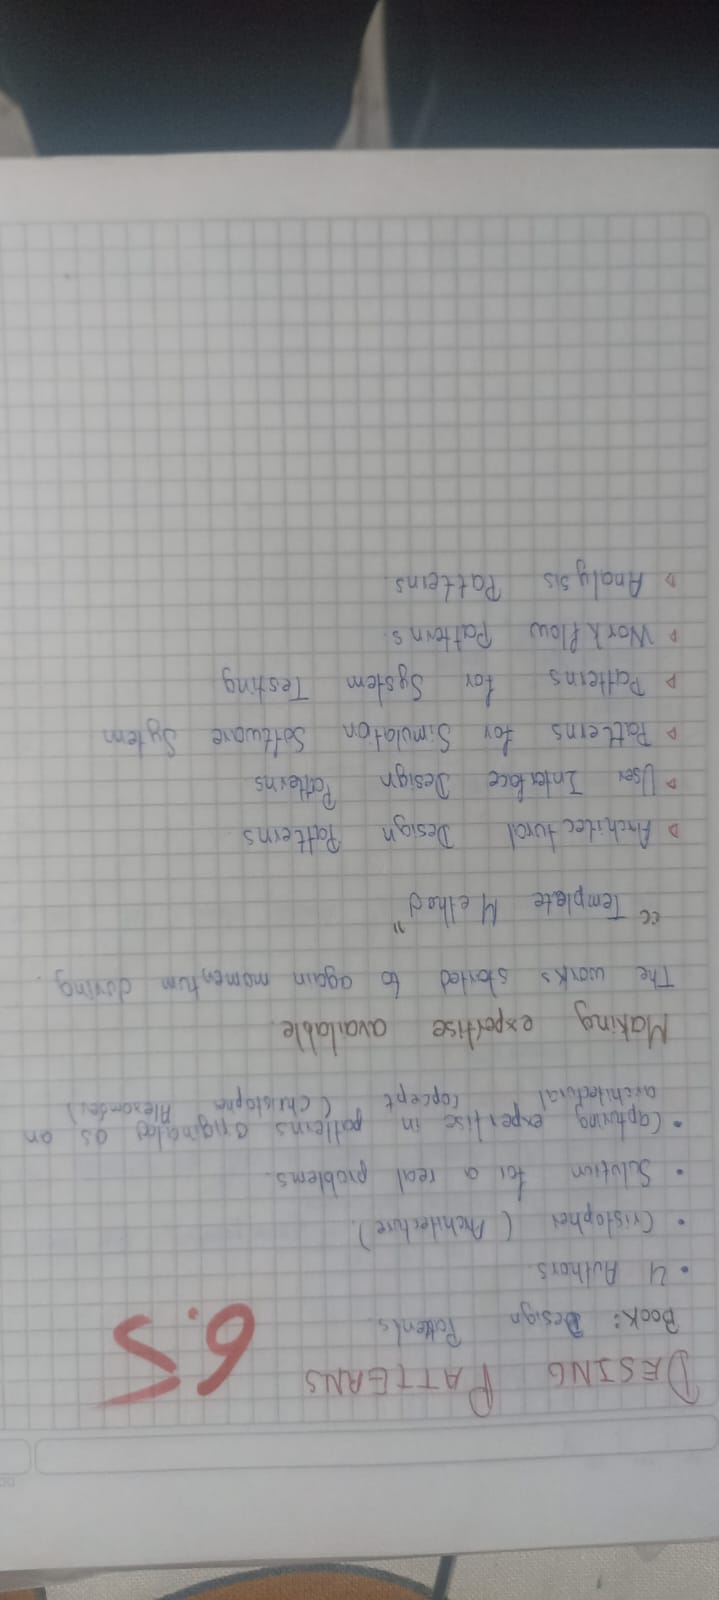 DESING PATTERNS
6.5
Book: Design Patterns.
• 4 Authors
• Cristopher (Architecture).
• Solution for a real problems.
• Capturing expertise in patterns originated as an
architectural concept (Christopher Alexander)
Making expertise available.
The works started to again momentum during.
"Template Method"
▹ Architectural Design Patterns
▹ User Interface Design Patterns
▹ Patterns for Simulation Software System
▹ Patterns for System Testing
▹ Workflow Patterns.
▹ Analysis Patterns.